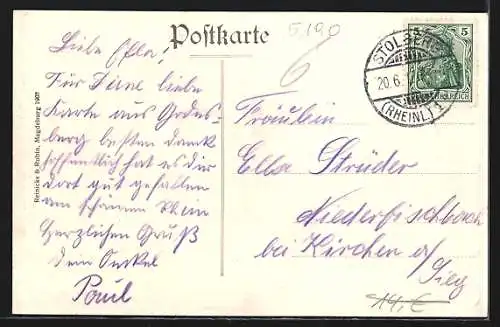 Postkarte
5190
6
STOLBERG
20.6.
(RHEINL.) 1
5
Liebe Ella!
Für Deine liebe
Karte aus Godes-
berg besten Dank
hoffentlich hat es dir
dort gut gefallen
am schönen Rhein
Herzlichen Gruß
dein Onkel
Paul
Reinicke & Rubin, Magdeburg 1907
Fräulein
Ella Strüder
Niederfischbach
bei Kirchen a/
Sieg
14.€